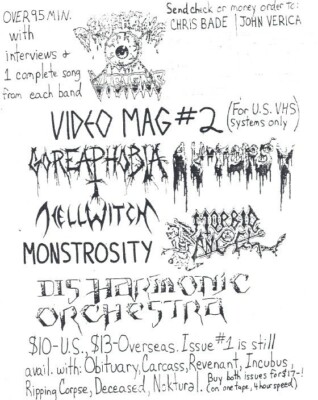 OVER 95 MIN.
with
interviews &
1 complete song
from each band
Send check or money order to:
CHRIS BADE / JOHN VERICA
VIDEO MAG #2
(For U.S. VHS
systems only)
GOREAPHOBIA
AUTOPSY
HELLWITCH
MORBID
ANGEL
MONSTROSITY
DISHARMONIC
ORCHESTRA
$10-U.S., $13-Overseas. Issue #1 is still
avail. with: Obituary, Carcass, Revenant, Incubus,
Ripping Corpse, Deceased, Noktural.
Buy both issues for $17-!
(on one tape, 4 hour speed)